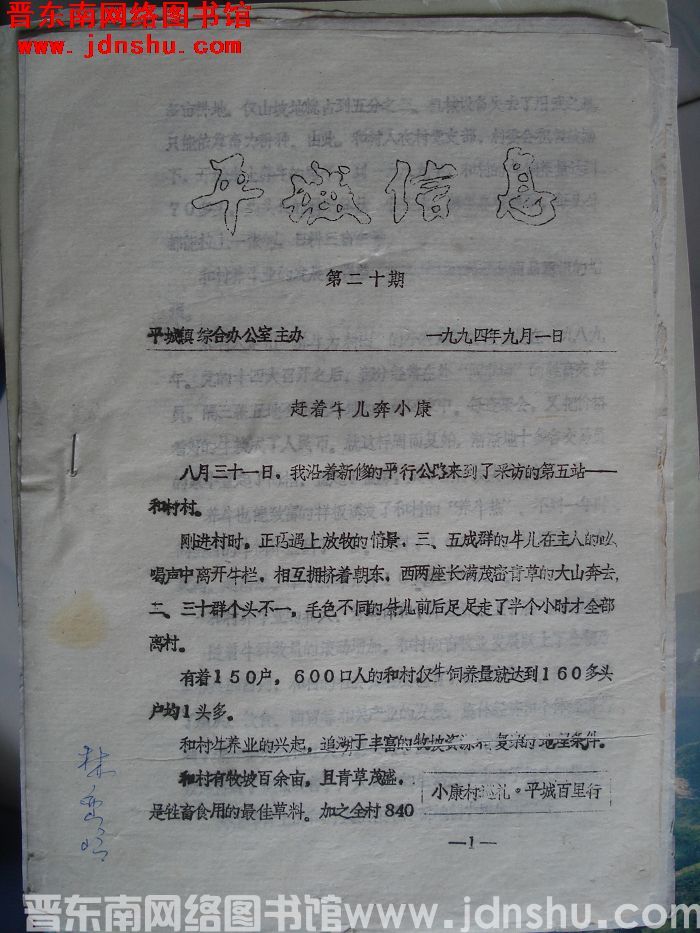 晋东南网络图书馆
www.jdnshu.com
平城信息
第二十期
平城镇综合办公室主办 一九九四年九月一日
赶着牛儿奔小康
八月三十一日，我沿着新修的平行公路来到了采访的第五站——
和村村。
刚进村时，正巧遇上放牧的情景，三、五成群的牛儿在主人的吆
喝声中离开牛栏，相互拥挤着朝东，西两座长满茂密青草的大山奔去，
二、三十群个头不一，毛色不同的牛儿前后足足走了半个小时才全部
离村。
有着150户，600口人的和村，仅牛饲养量就达到160多头
户均1头多。
和村牛养业的兴起，追溯于丰富的牧坡资源和复杂的地理条件。
和村有牧坡百余亩，且青草茂盛，
是牲畜食用的最佳草料。加之全村840
小康村巡礼·平城百里行
—1—
晋东南网络图书馆www.jdnshu.com